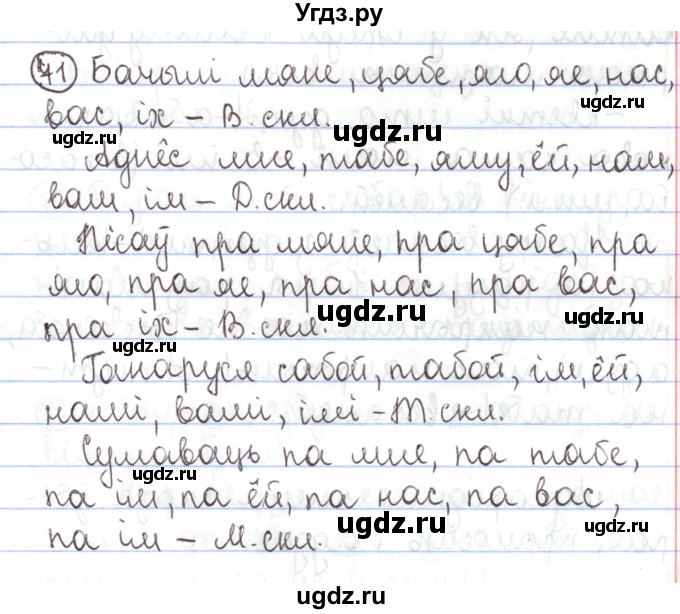 Угдз.ру
71 Бачылі мяне, цябе, яго, яе, нас,
вас, іх – В. скл.
ugdz.ru
ugdz.ru
Аднёс мне, табе, яму, ёй, нам,
вам, ім – Д. скл.
ugdz.ru
ugdz.ru
Пісаў пра мяне, пра цябе, пра
яго, пра яе, пра нас, пра вас,
пра іх – В. скл.
ugdz.ru
ugdz.ru
Ганаруся сабой, табой, ім, ёй,
намі, вамі, імі – Т. скл.
ugdz.ru
Сумаваць па мне, па табе,
ugdz.ru
па ім, па ёй, па нас, па вас,
ugdz.ru
па ім – М. скл.
ugdz.ru
ugdz.ru